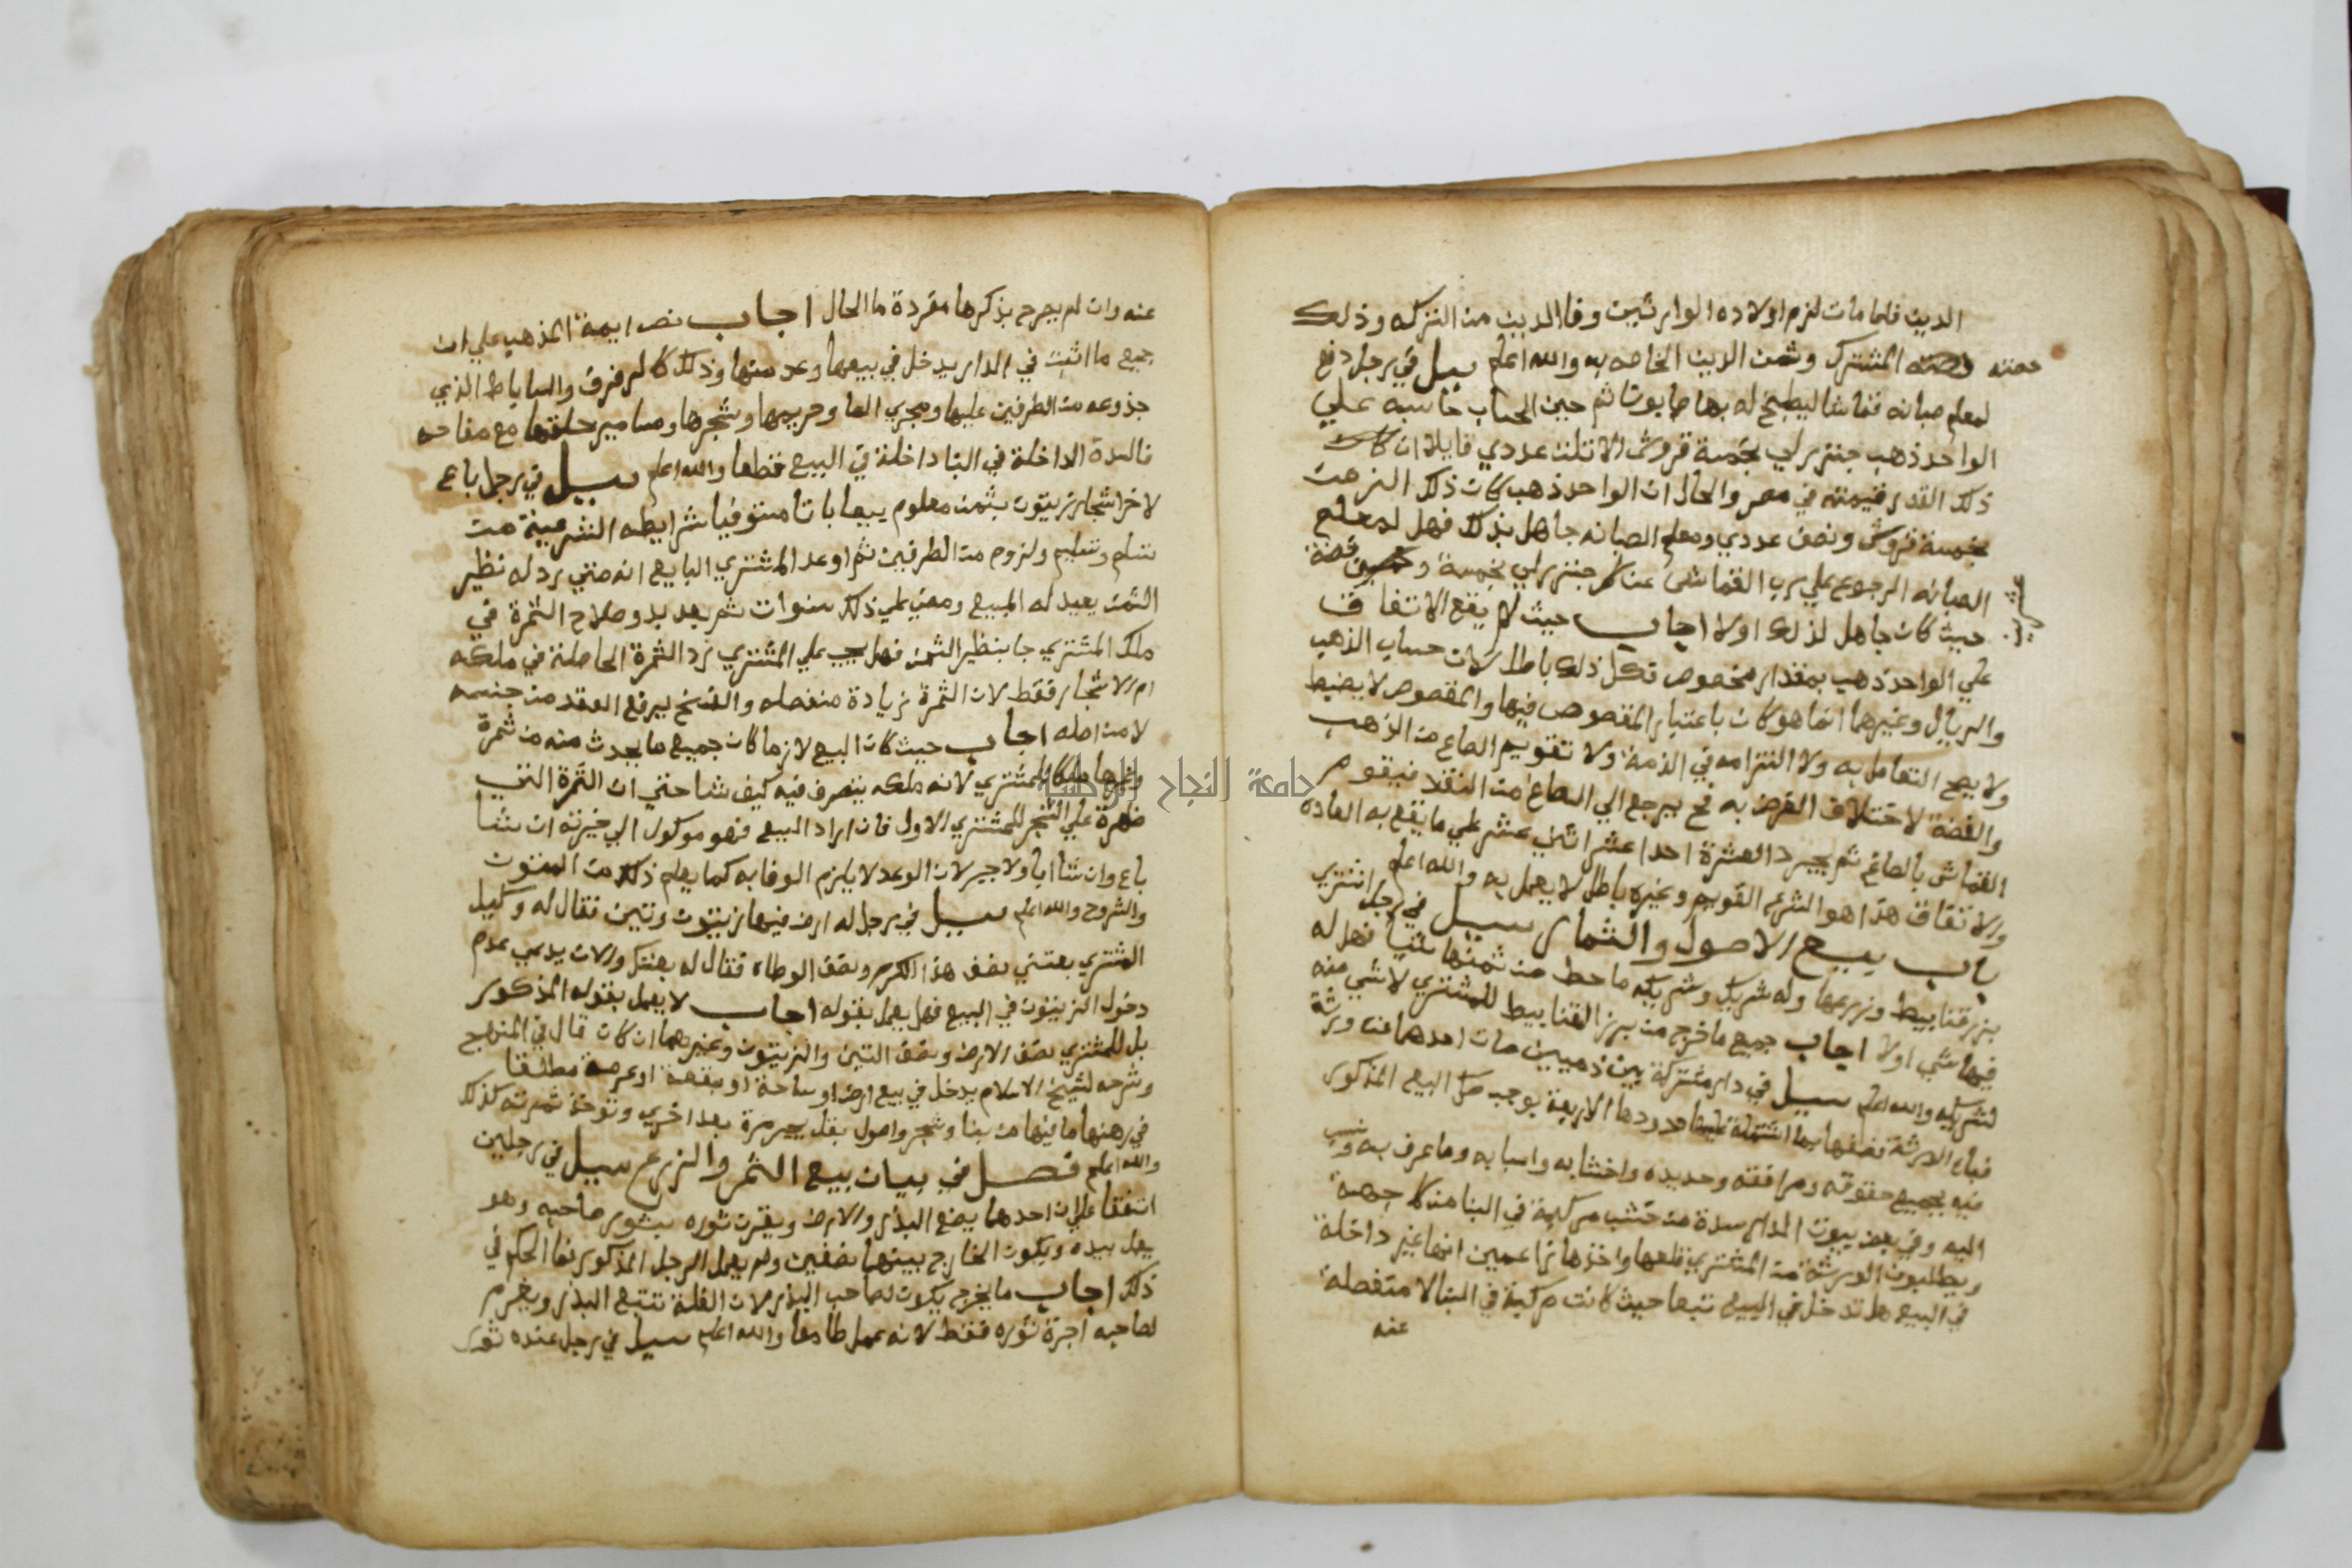 الدين فلما مات لزم اولاده الوارثين وفا الدين من التركه وذلك
حصته المشترك وثمن الدين الخاصه به والله اعلم سيل في رجل دفع
لمعلم صبانه قماشا ليطبخ له بها صابونا ثم حين الحساب حاسبه علي
الواحد ذهب جنزرلي بخمسة قروش الا تلت عددي قايلا ان كان
ذلك القدر قيمته في مصر والحال ان الواحد ذهب كان ذلك الزمن
بخمسة قروش ونصف عددي ومعلم الصبانه جاهل بذلك فهل لمعلم
الصبانه الرجوع علي رب القماش عن كل جنزرلي بخمسة وخمسين فضة
حيث كان جاهل لذلك اولا اجاب حيث لا يقع الاتفاق
علي الواحد ذهب بمقدار مخصوص فكل ذلك باطل لان حساب الذهب
والريال وغيرهما انما هو كان باعتبار المقصوص فيها والمقصوص لا يضبط
ولا يصح التعامل به ولا التزامه في الذمة ولا تقويم الصاع من الذهب
والفضة لاختلاف الغرض به فح يرجع الي الصاغ من النقد فيقوم
القماش بالصاغ ثم يجبر د العشرة احد عشر اثني عشر علي ما يقع به العاده
والاتفاق هذا هو الشرع القويم وغيره باطل لا يعمل به والله اعلم
باب بيع الاصول والثمار سيل في رجل اشتري
بزر قنابيط وزرعها وله شريك وشريكه ما حط من ثمنها شيا فهل له
فيها شي اولا اجاب جميع ما خرج من بزر القنابيط للمشتري لا شي منه
لشريكه والله اعلم سيل في دار مشتركة بين ذميين مات احدهما عن ورثة
فباع الورثة نصفها بما اشتملة عليه حدودها الاربعة بوجب صك البيع المذكور
فيه بجميع حقوقه ومرافقه وحديده واخشابه واسبابه وما عرف به ونسب
اليه وفي بعض بيوت الدار سدة من خشب مركبة في البنا من كل جهة
ويطلبون الورثة من المشتري قلعها واخذها زاعمين انها غير داخلة
في البيع هل تدخل في البيع تبعا حيث كانت مركبة في البنا لا منفصله
عنه
عنه وان لم يصرح بذكرها مفردة ما الحال اجاب نص ايمة المذهب علي ان
جميع ما اثبت في الدار يدخل في بيعها وعد منها وذلك كالرفرف والساباط الذي
جذوعه من الطرفين عليها ومجري الما وحريمها وشجرها ومسامير حلقها مع مفاتحه
فالسدة الداخلة في البنا داخلة في البيع قطعا والله اعلم سيل في رجل باع
لاخر اشجار زيتون بثمن معلوم بيعا باتا مستوفيا شرايطه الشرعية من
تسلم وتسليم ولزوم من الطرفين ثم اوعد المشتري البايع انه متي رد له نظير
الثمن يعيد له المبيع ومضي علي ذلك سنوات ثم بعد بدو صلاح الثمرة في
ملك المشتري جا بنظير الثمن فهل يجب علي المشتري رد الثمرة الحاصلة في ملكه
ام الاشجار فقط لان الثمرة زيادة منفصله والفسخ يرفع العقد من حينه
لا من اصله اجاب حيث كان البيع لازما كان جميع ما يحدث منه من ثمرة
وغيرها ملكا للمشتري لانه ملكه يتصرف فيه كيف شا حتي ان الثمرة التي
ظهرة علي الشجر للمشتري الاول فان اراد البيع فهو موكول الي خيرته ان شا
باع وان شا ابا ولا جبر لان الوعد لا يلزم الوفا به كما يعلم ذلك من المتون
والشروح والله اعلم سيل في رجل له ارض فيها زيتون وتين فقال له وكيل
المشتري بعتني نصف هذا الكرم ونصف الوطاه فقال له بعتك والان يدعي عدم
دخول الزيتون في البيع فهل يعمل بقوله اجاب لا يعمل بقوله المذكور
بل للمشتري نصف الارض ونصف التين والزيتون وغيرهما ان كان قال في المنهج
وشرحه لشيخ الاسلام يدخل في بيع ارض او ساحة او بقعة او عرصة مطلقا
في رهنها ما فيها من بنا وشجر واصول بقل يجز مرة بعد اخري وتوخذ ثمرته كذلك
والله اعلم فصل في بيان بيع الثمر والزرع سيل في رجلين
اتفقا علي ان احدهما يضع البذر والارض ويقرن ثوره بثور صاحبه وهو
يعمل بيده ويكون الخارج بينهما نصفين ولم يعمل الرجل المذكور فما الحكم في
ذلك اجاب ما يخرج يكون لصاحب البذر لان الغلة تتبع البذر ويغرم
لصاحبه اجرة ثوره فقط لانه عمل طامعا والله اعلم سيل في رجل عنده ثور
جامعة النجاح الوطنية